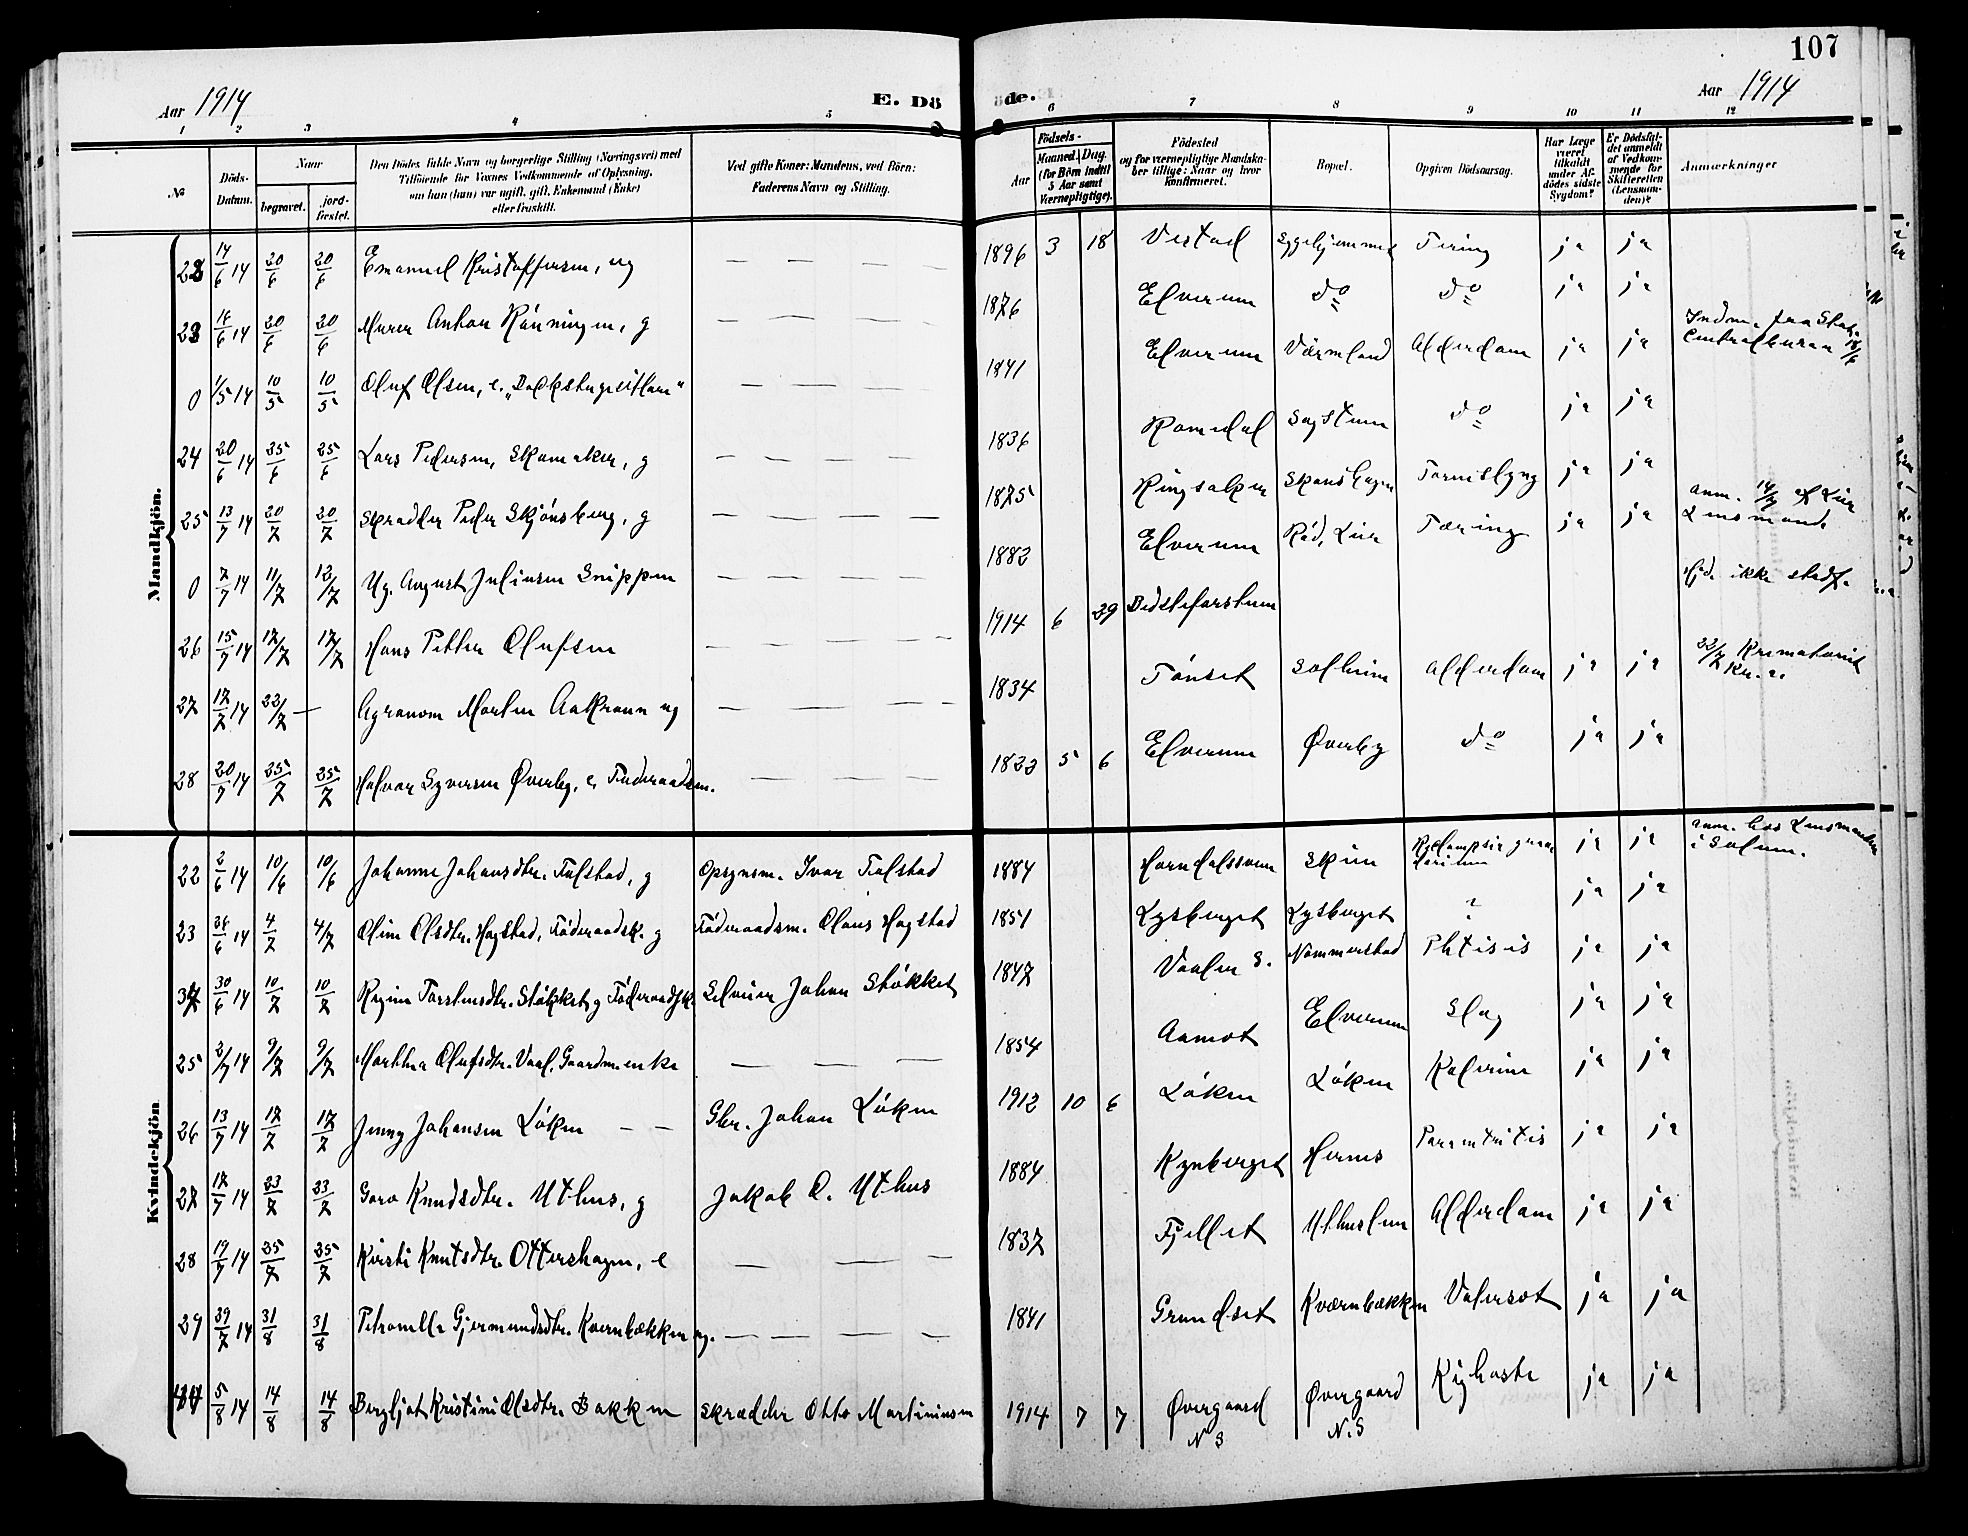 107
Aar 1914 E. Döde. Aar 1914
1 2 3 4 5 6 7 8 9 10 11 12
№ Döds-Datum. Naar begravet. jordfæstet. Den Dödes fulde Navn og borgerlige Stilling (Næringsvei) med Tilföiende for Voxnes Vedkommende af Oplysning, om han (hun) var ugift, gift, Enkemand (Enke) eller fraskilt. Ved gifte Koner: Mandens, ved Börn: Faderens Navn og Stilling. Födsels- Aar Maaned. Dag. (for Börn indtil 5 Aar samt Værnepligtige). Födested og for værnepligtige Mandskaber tillige: Naar og hvor Konfirmeret. Bopæl. Opgiven Dödsaarsag. Har Læge været tilkaldt under Afdödes sidste Sygdom? Er Dödsfaldet anmeldt af Vedkommende for Skifteretten (Lensmanden)? Anmærkninger
Mandkjön.
22 14/6 14 20/6 20/6 Emanuel Kristoffersen, ug — — — — 1896 3 18 Vestad Sygehjemmet Tæring ja ja
23 16/6 14 20/6 20/6 Murer Anton Rönningen, g — — — — 1876 Elverum do do ja ja
0 1/5 14 10/5 10/5 Oluf Olsen, e. „Backstugesittare" — — — — 1841 Elverum Värmland Alderdom ja ja Indm. fra Stat. Centralbureau 18/6
24 20/6 14 25/6 25/6 Lars Pedersen, Skomaker, g — — — — 1836 Romedal Sagstuen do ja ja
25 13/7 14 20/7 20/7 Skrædder Peder Skjönsberg, g — — — — 1875 Ringsaker Skanshagen Tarmslyng ja ja
0 7/7 14 11/7 12/7 Ug. August Juliusen Snippen — — — — 1882 Elverum Röd, Lier Tæring ja ja anm. 14/7 af Lier Lensmand.
26 15/7 14 17/7 17/7 Hans Petter Olufsen — — — — 1914 6 29 Bedstefarstuen Hjd. ikke stadf.
27 17/7 14 22/7 — Agronom Morten Aakrann ug — — — — 1834 Tönset Solheim Alderdom ja ja 22/7 Krematoriet Kr.a.
28 20/7 14 25/7 25/7 Halvor Syversen Överby, e. Föderaadsm. — — — 1823 5 6 Elverum Överby do ja ja
Kvindekjön
22 2/6 14 10/6 10/6 Johanne Johansdtr. Falstad, g Opsynsm. Ivar Falstad 1884 Horndalssveen Skien Eclampsia gravidarum ja ja anm. hos Lensmanden i Solum.
23 26/6 14 4/7 4/7 Oline Olsdtr. Hagstad, Föderaadsk. g Föderaadsm. Olaus Hagstad 1851 Lysberget Lysberget ? ja ja
24 30/6 14 10/7 10/7 Regine Torstensdtr. Stökket g Föderaadsk. Selveier Johan Stökket 1847 Vaaler S. Nommerstad Phtisis ja ja
25 2/7 14 9/7 9/7 Marthea Olufsdtr. Vaal, Gaardmenke — — — 1854 Aamot Elverum Slag ja ja
26 13/7 14 17/7 17/7 Jenny Johansen Löken — — Gbr. Johan Löken 1912 10 6 Löken Löken Kolerine ja ja
27 17/7 14 23/7 23/7 Goro Knudsdtr. Uthus, g Jakob O. Uthus 1884 Kynberget Hernes Parametritis ja ja
28 19/7 14 25/7 25/7 Kirsti Knutsdtr. Ottershagen, e — — — 1837 Fjellet Uthuslien Alderdom ja ja
29 29/7 14 31/8 31/8 Petronelle Gjermundsdtr. Kvernbækken ug. — — — — 1841 Grundset Kværnbækken Valersot ja ja
5/8 14 14/8 14/8 Bergljot Kristine Olsdtr. Bakken Skrædder Otto Martiniusen 1914 7 7 Övergaard N S Övergaard N.S Kighoste ja ja